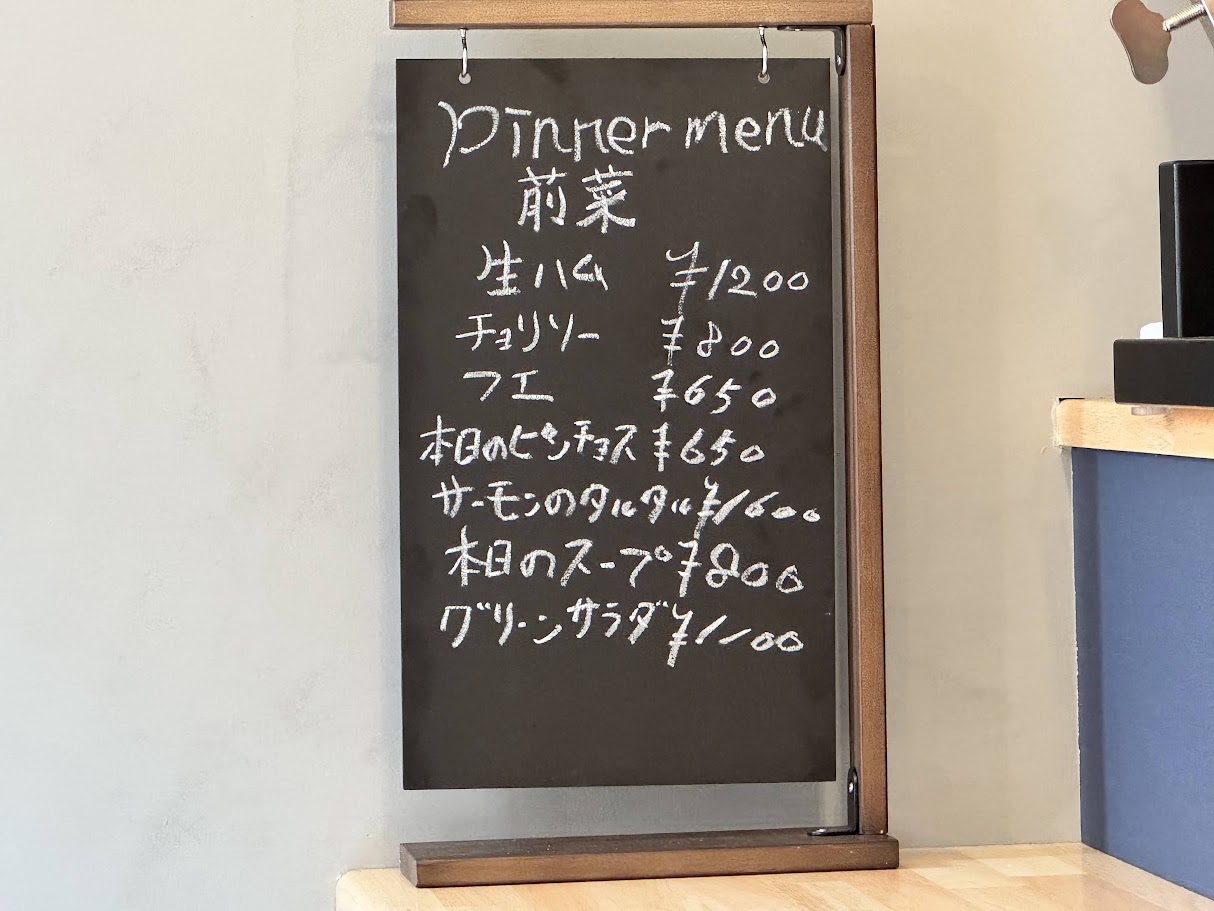 Dinner menu
前菜
生ハム ¥1200
チョリソー ¥800
フエ ¥650
本日のピンチョス ¥650
サーモンのタルタル ¥1600
本日のスープ ¥800
グリーンサラダ ¥1100